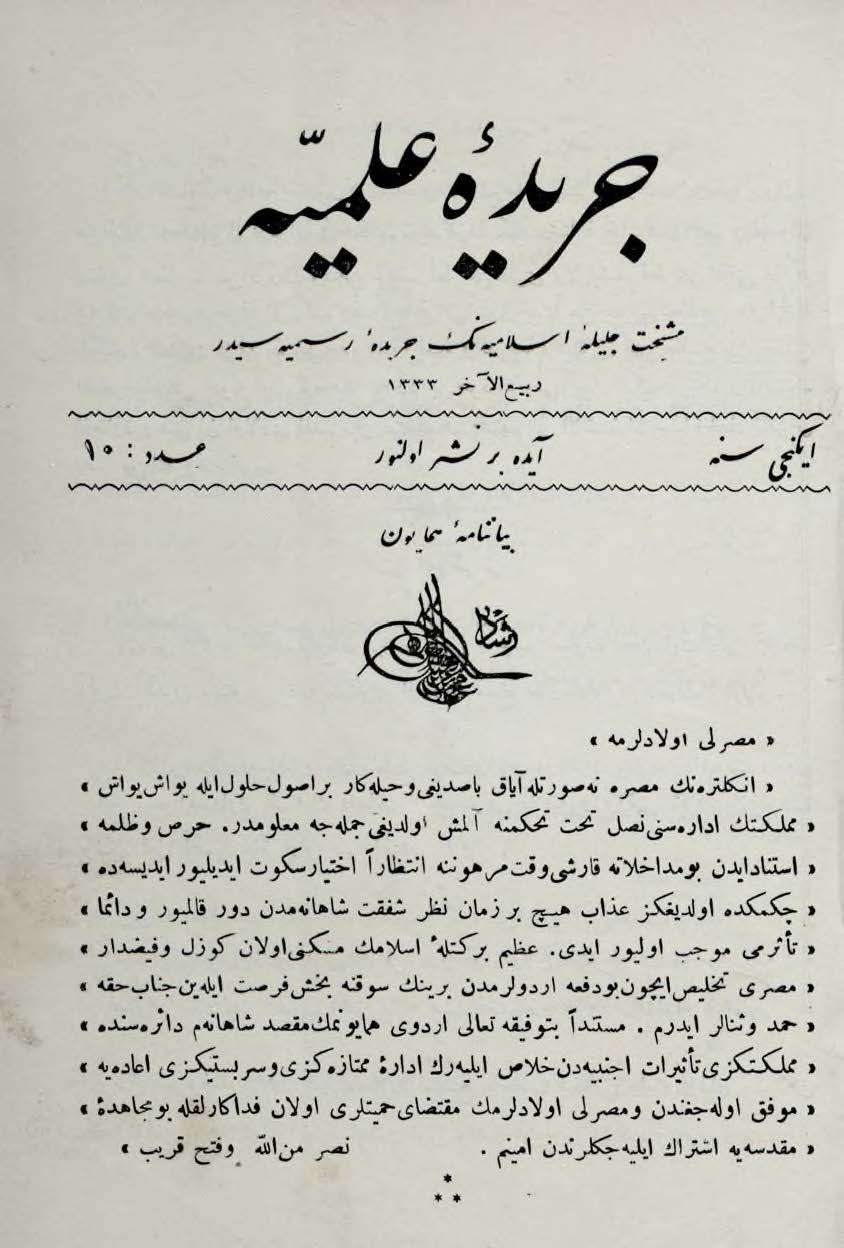 جریدهٔ علمیّه
مشیخت جلیلهٔ اسلامیه‌نك جریدهٔ رسمیه سیدر
ربیع الآخر ١٣٣٣
ایكنجی سنه آیده بر نشر اولنور عدد : ١٠
بیاننامهٔ همایون
رشاد
« مصرلی اولادلرمه »
« انكلتره‌نك مصره نه‌صورتله‌آیاق باصدیغی‌وحیله‌كار براصول‌حلول‌ایله یواش‌یواش »
« مملكتك اداره‌سنی‌نصل تحت تحكمنه آلمش اولدیغی‌جمله‌جه معلومدر. حرص وظلمه »
« استنادایدن بومداخلاته قارشی‌وقت‌مرهوننه انتظاراً اختیارسكوت ایدیلیور ایدیسه‌ده »
« چكمكده اولدیغكز عذاب هیچ بر زمان نظر شفقت شاهانه‌مدن دور قالمیور و دائما »
« تأثرمی موجب اولیور ایدی. عظیم بركتلهٔ اسلامك مسكنی‌اولان كوزل وفیضدار »
« مصری تخلیص‌ایچون‌بودفعه اردولرمدن برینك سوقنه بخش‌فرصت ایله‌ین‌جناب‌حقه »
« حمد وثنالر ایدرم . مستنداً بتوفیقه تعالی اردوی همایونمك‌مقصد شاهانه‌م دائره‌سنده »
« مملكتكزی‌تأثیرات اجنبیه‌دن‌خلاص ایلیه‌رك ادارهٔ ممتازه‌كزی‌وسربستیكزی اعاده‌یه »
« موفق اوله‌جغندن ومصرلی اولادلرمك مقتضای‌حمیتلری اولان فداكارلقله بومجاهدهٔ »
« مقدسه‌یه اشتراك ایلیه‌جكلرندن امینم . نصر من‌الله وفتح قریب »
* * *